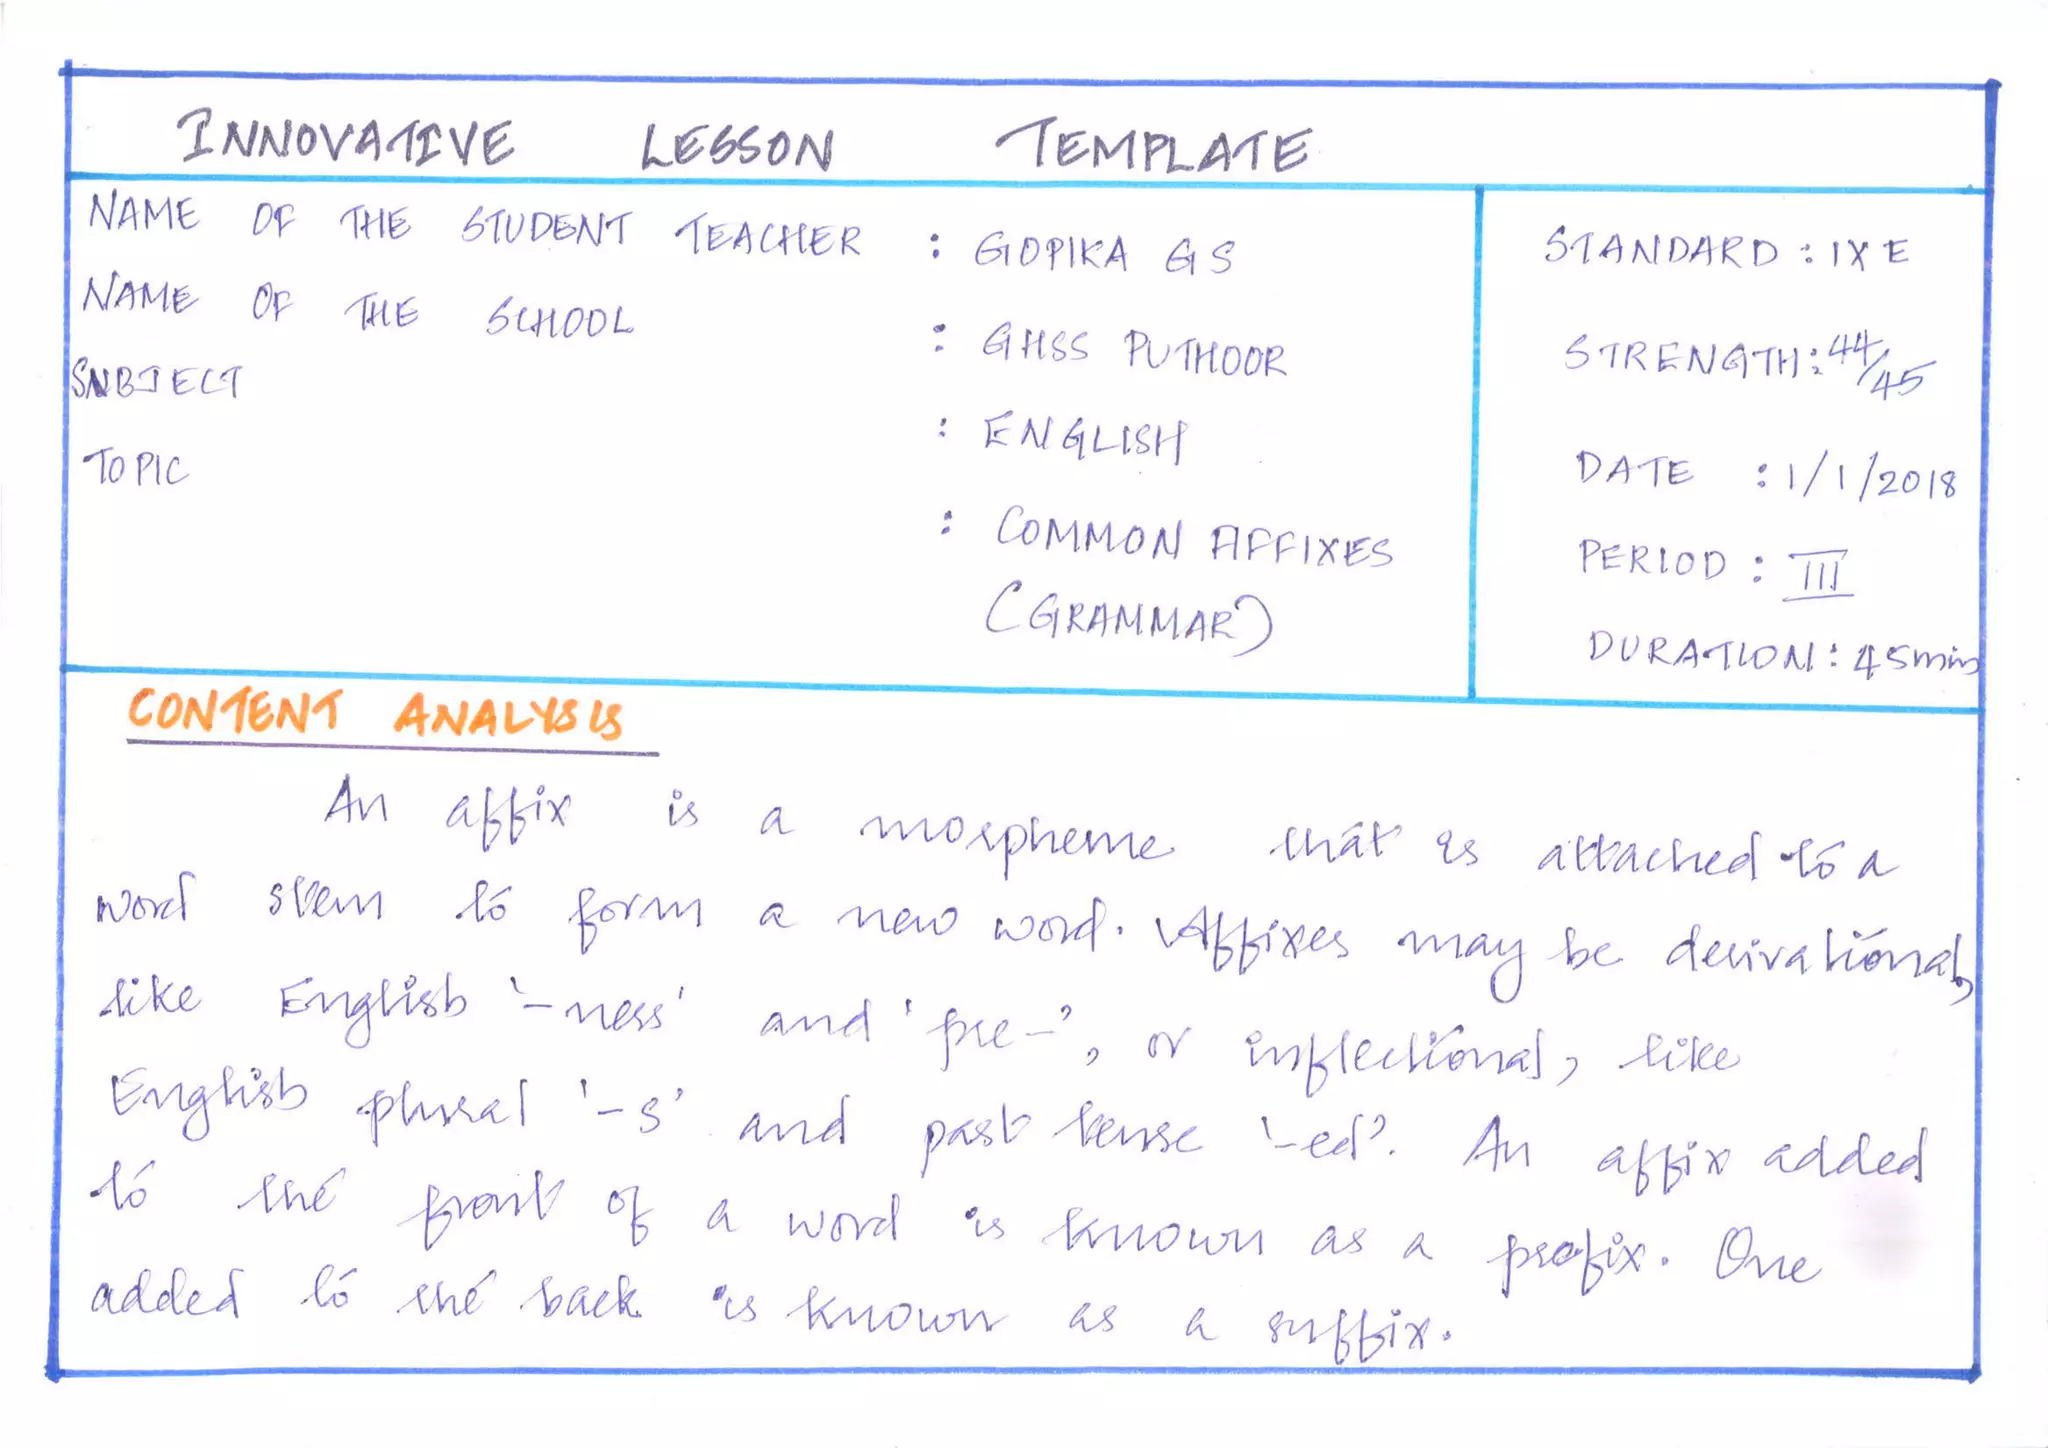 INNOVATIVE LESSON TEMPLATE
NAME OF THE STUDENT TEACHER : GOPIKA GS
NAME OF THE SCHOOL : GHSS PUTHOOR
SUBJECT : ENGLISH
TOPIC : COMMON AFFIXES
(GRAMMAR)
STANDARD : IX E
STRENGTH : 44/45
DATE : 1/1/2018
PERIOD : III
DURATION : 45min
CONTENT ANALYSIS
An affix is a morpheme that is attached to a
word stem to form a new word. Affixes may be derivational,
like English '-ness' and 'pre-', or inflectional, like
English plural '-s' and past tense '-ed'. An affix added
to the front of a word is known as a prefix. One
added to the back is known as a suffix.